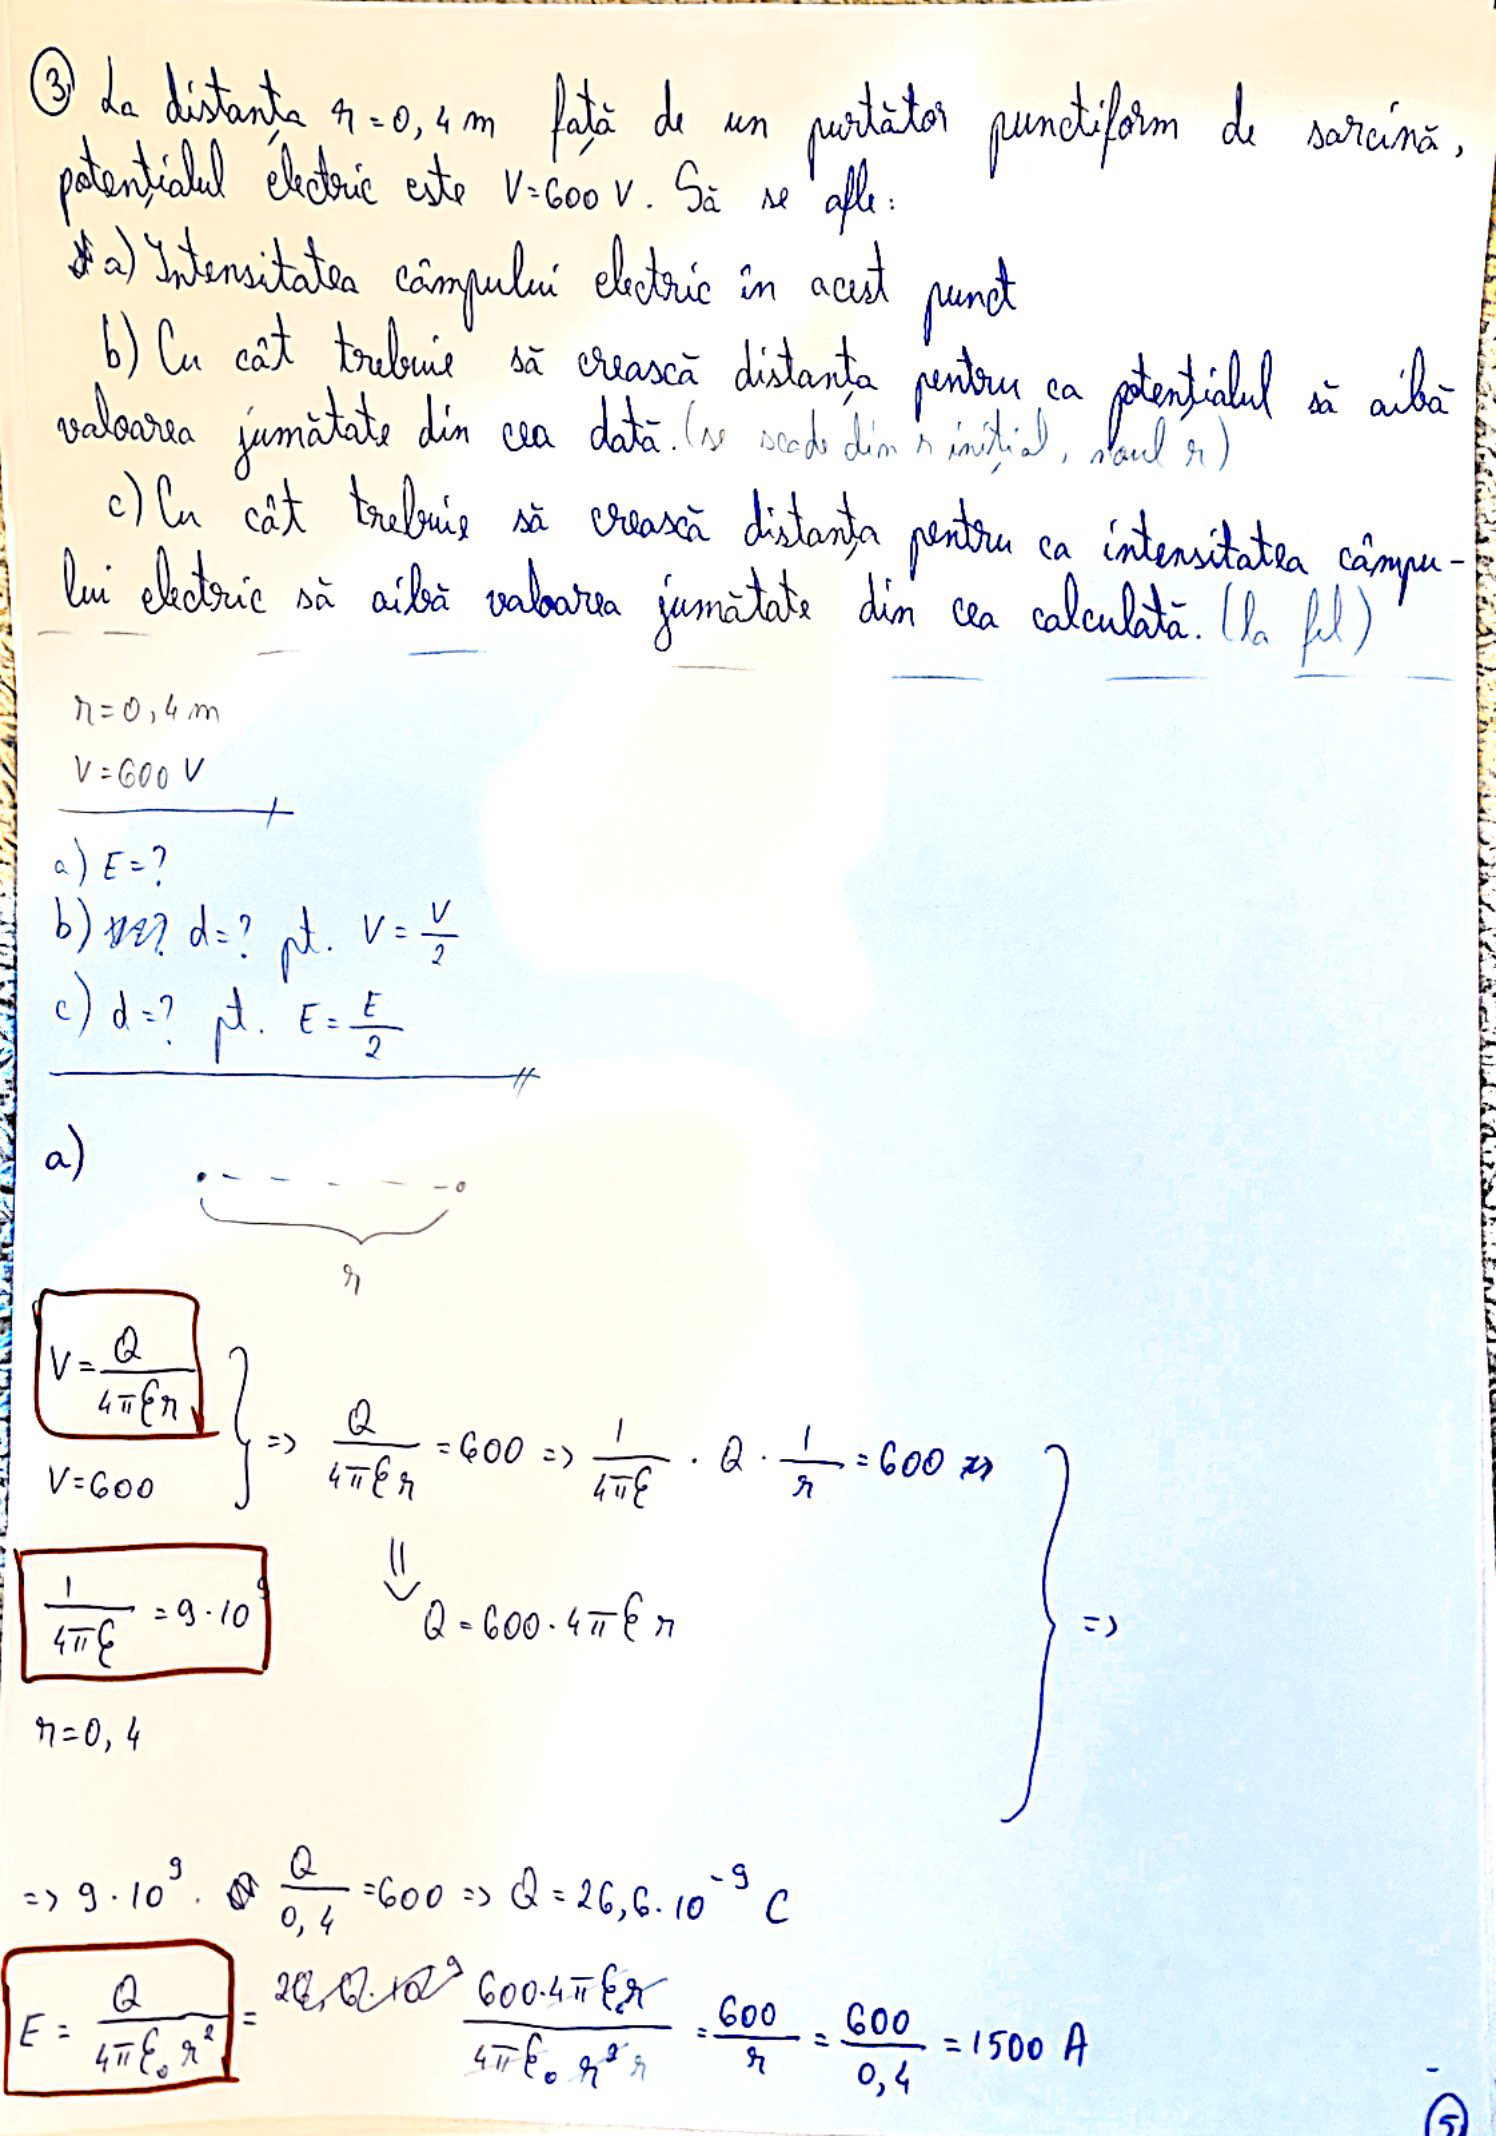 ③ La distanța r=0,4 m față de un purtător punctiform de sarcină,
potențialul electric este V=600 V. Să se afle:
a) Intensitatea câmpului electric în acest punct
b) Cu cât trebuie să crească distanța pentru ca potențialul să aibă
valoarea jumătate din cea dată. (se scade din r inițial, noul r)
c) Cu cât trebuie să crească distanța pentru ca intensitatea câmpu-
lui electric să aibă valoarea jumătate din cea calculată. (la fel)
r=0,4 m
V=600 V
a) E=?
b) d=? pt. V=V/2
c) d=? pt. E=E/2
a)
r
V=Q/4πεr
V=600
=> Q/4πεr =600 => 1/4πε · Q · 1/r =600
1/4πε =9·10⁹
Q=600·4πεr
=>
r=0,4
=> 9·10⁹· Q/0,4 =600 => Q=26,6·10⁻⁹ C
E= Q/4πε₀r² = 600·4πεr/4πε₀r² r = 600/r = 600/0,4 =1500 A
⑤